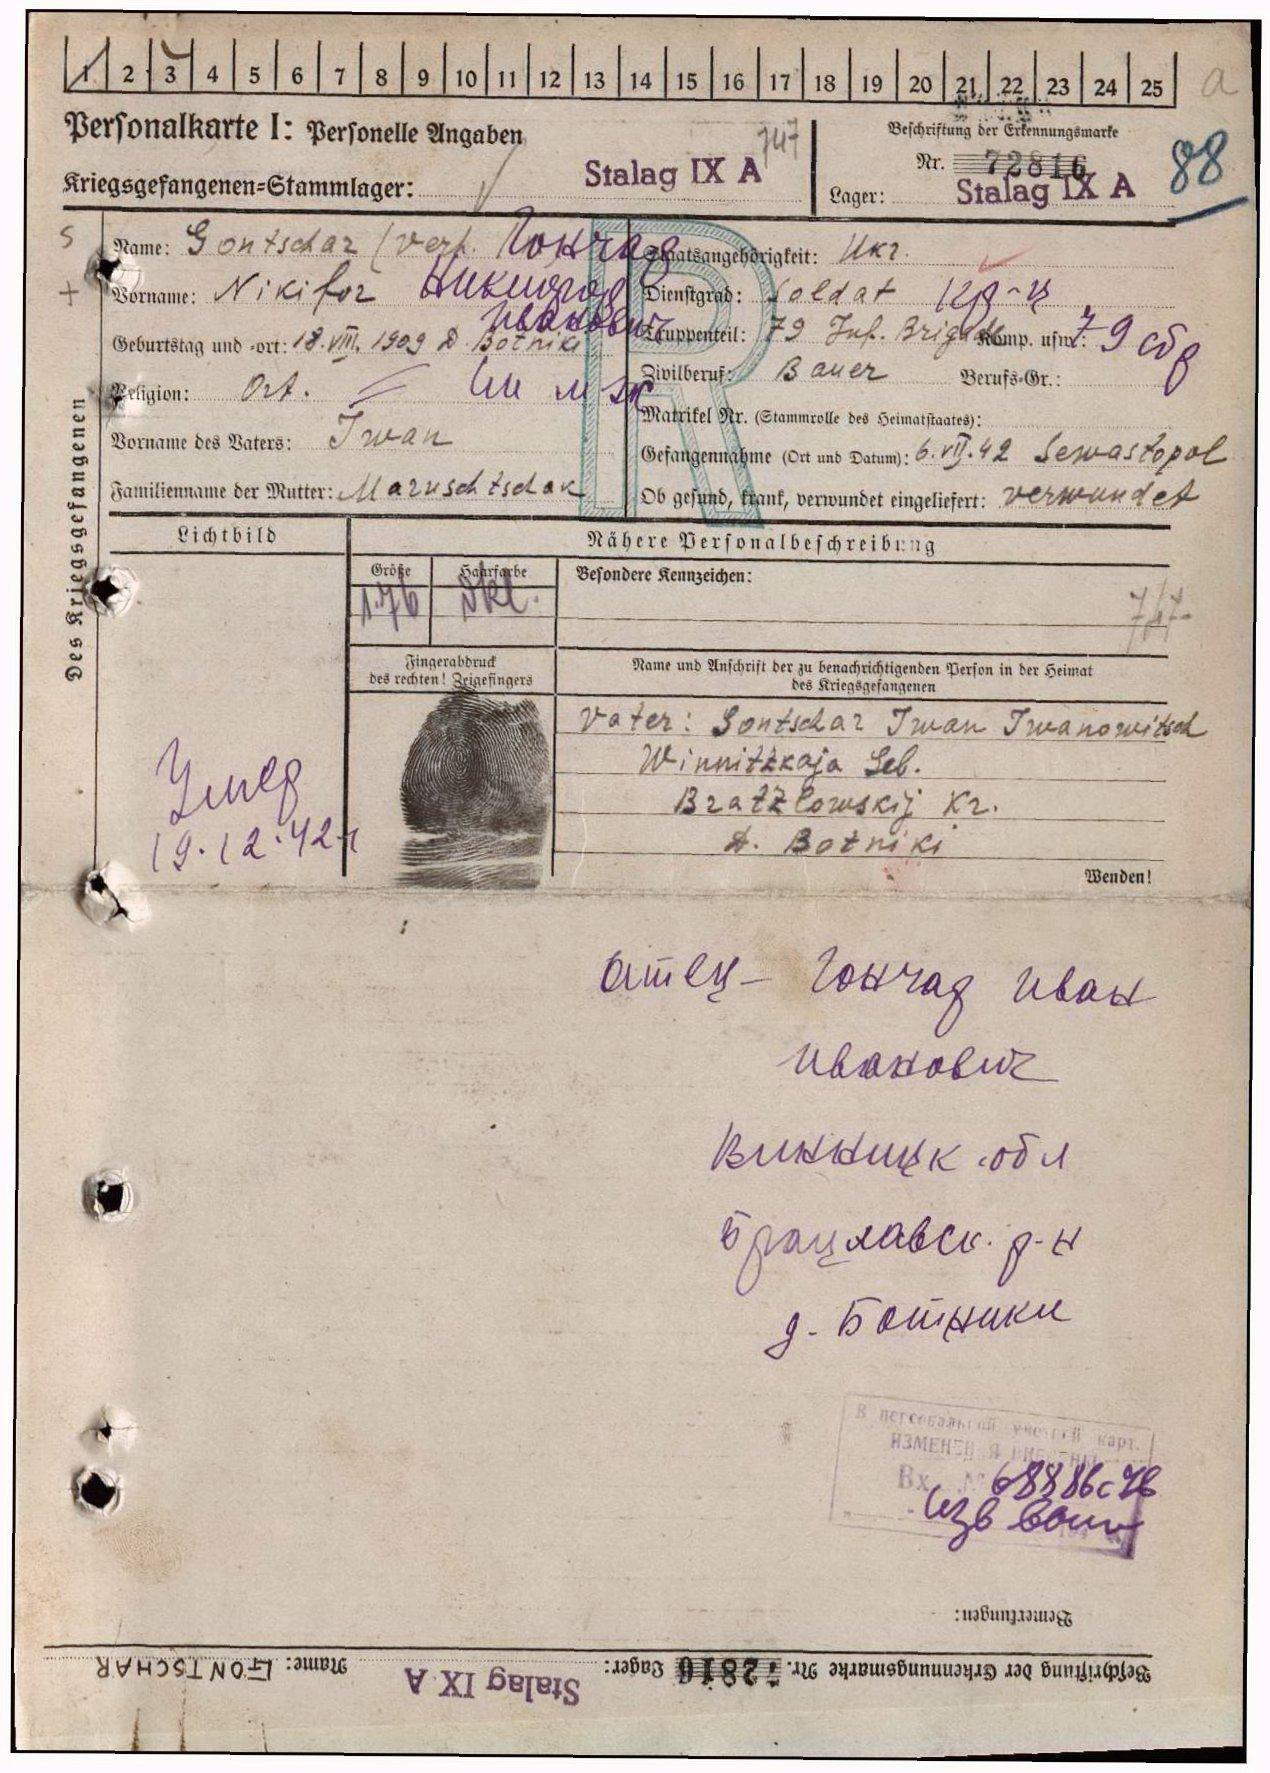 1 2 3 4 5 6 7 8 9 10 11 12 13 14 15 16 17 18 19 20 21 22 23 24 25 a
Personalkarte I: Personelle Angaben
747
Beschriftung der Erkennungsmarke
Kriegsgefangenen-Stammlager: Stalag IX A
Nr. 72816
Lager: Stalag IX A
88
Des Kriegsgefangenen
Name: Gontschar (verh. Гончар
Vorname: Nikifor Никифор
Иванович
Geburtstag und -ort: 18.VIII.1909 D. Botniki
Religion: Ort.
Vorname des Vaters: Iwan
Familienname der Mutter: Maruschtschak
R
Staatsangehörigkeit: Ukr.
Dienstgrad: Soldat Кр-ц
Truppenteil: 79 Inf. Brigade Komp. usw.: 79 сбр
Zivilberuf: Bauer Berufs-Gr.:
Matrikel Nr. (Stammrolle des Heimatstaates):
Gefangennahme (Ort und Datum): 6.VII.42 Sewastopol
Ob gesund, krank, verwundet eingeliefert: verwundet
Lichtbild
Nähere Personalbeschreibung
Größe Haarfarbe Besondere Kennzeichen:
1.76 Dkl.
747-
Fingerabdruck
des rechten! Zeigefingers
Name und Anschrift der zu benachrichtigenden Person in der Heimat
des Kriegsgefangenen
Vater: Gontschar Iwan Iwanowitsch
Winnitzkaja Geb.
Bratzlowskij Kr.
D. Botniki
Умер
19.12.42 г
Wenden!
Отец - Гончар Иван
Иванович
Винницк. обл
Брацлавск. р-н
д. Ботники
В персональной учетной карт.
ИЗМЕНЕНИЯ ВНЕСЕНЫ
Вх. № 68886с 46
Bemerkungen:
Beschriftung der Erkennungsmarke Nr. 72816 Lager: Stalag IX A Name: GONTSCHAR